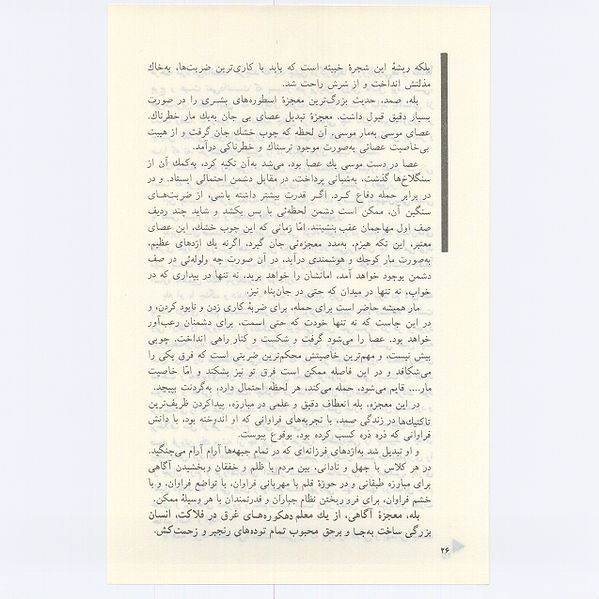 بلکه ریشهٔ این شجرهٔ خبیثه است که باید با کاری‌ترین ضربت‌ها، به‌خاك
مذلتش انداخت و از شرش راحت شد.
بله، صمد، حدیث بزرگ‌ترین معجزهٔ اسطوره‌های بشری را در صورت
بسیار دقیق قبول داشت. معجزهٔ تبدیل عصای بی جان به‌یك مار خطرناك.
عصای موسی به‌مار موسی. آن لحظه که چوب خشك جان گرفت و از هیبت
بی‌خاصیت عصائی به‌صورت موجود ترسناك و خطرناکی درآمد.
عصا در دست موسی یك عصا بود، می‌شد به‌آن تکیه کرد، به‌کمك آن از
سنگلاخ‌ها گذشت، به‌شبانی پرداخت، در مقابل دشمن احتمالی ایستاد. و در
برابر حمله دفاع کرد. اگر قدرت بیشتر داشته باشی، از ضربت‌های
سنگین آن، ممکن است دشمن لحظه‌ئی با پس بکشد و شاید چند ردیف
صف اول مهاجمان عقب بنشینند. امّا زمانی که این چوب خشك، این عصای
معتبر، این تکه هیزم، به‌مدد معجزه‌ئی جان گیرد، اگرنه یك اژدهای عظیم،
به‌صورت مار کوچك و هوشمندی درآید، در آن صورت چه ولوله‌ئی در صف
دشمن بوجود خواهد آمد، امانشان را خواهد برید، نه تنها در بیداری که در
خواب، نه تنها در میدان که حتی در جان‌پناه نیز.
مار همیشه حاضر است برای حمله، برای ضربهٔ کاری زدن و نابود کردن، و
در این جاست که نه تنها خودت که حتی اسمت، برای دشمنان رعب‌آور
خواهد بود. عصا را می‌شود گرفت و شکست و کنار راهی انداخت. چوبی
بیش نیست، و مهم‌ترین خاصیتش محکم‌ترین ضربتی است که فرق یکی را
می‌شکافد و در این فاصله ممکن است فرق تو نیز بشکند و امّا خاصیت
مار.... قایم می‌شود، حمله می‌کند، هر لحظه احتمال دارد، به‌گردنت بپیچد.
در این معجزه، بله انعطاف دقیق و علمی در مبارزه، پیداکردن ظریف‌ترین
تاکتیك‌ها در زندگی صمد، با تجربه‌های فراوانی که او اندوخته بود، با دانش
فراوانی که ذره ذره کسب کرده بود، بوقوع پیوست.
و او تبدیل شد به‌اژدهای فرزانه‌ای که در تمام جبهه‌ها آرام آرام می‌جنگید.
در هر کلاس با جهل و نادانی، بین مردم با ظلم و خفقان وبخشیدن آگاهی
برای مبارزه طبقاتی و در حوزهٔ قلم با مهربانی فراوان، با تواضع فراوان، و با
خشم فراوان، برای فرو ریختن نظام جباران و قدرتمندان با هر وسیلهٔ ممکن.
بله، معجزهٔ آگاهی، از یك معلم دهکوره‌های غرق در فلاکت، انسان
بزرگی ساخت به‌جا و برحق محبوب تمام توده‌های رنجبر و زحمت‌کش.
۲۶